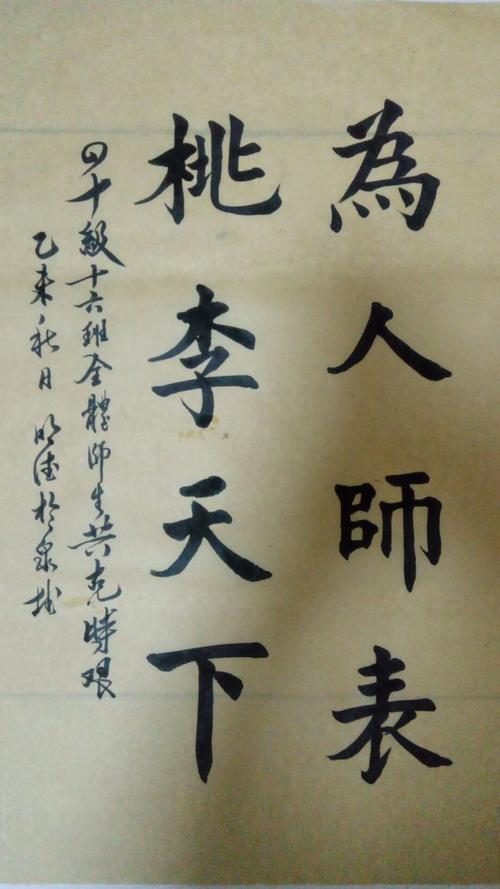 為人師表
桃李天下
四十級十六班全體師生共克時艱
乙未秋月 明德於泉城